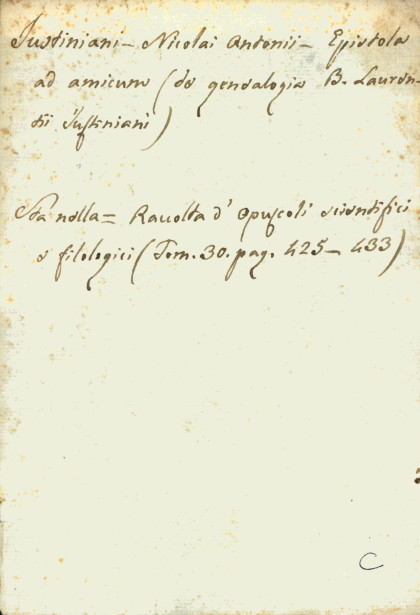 Justiniani - Nicolai Antonii - Epistola
ad amicum (de genealogia B. Lauren-
tii Justiniani)
Sta nella = Raccolta d' opuscoli scientifici
e filologici (Tom. 30. pag. 425 - 433)
C